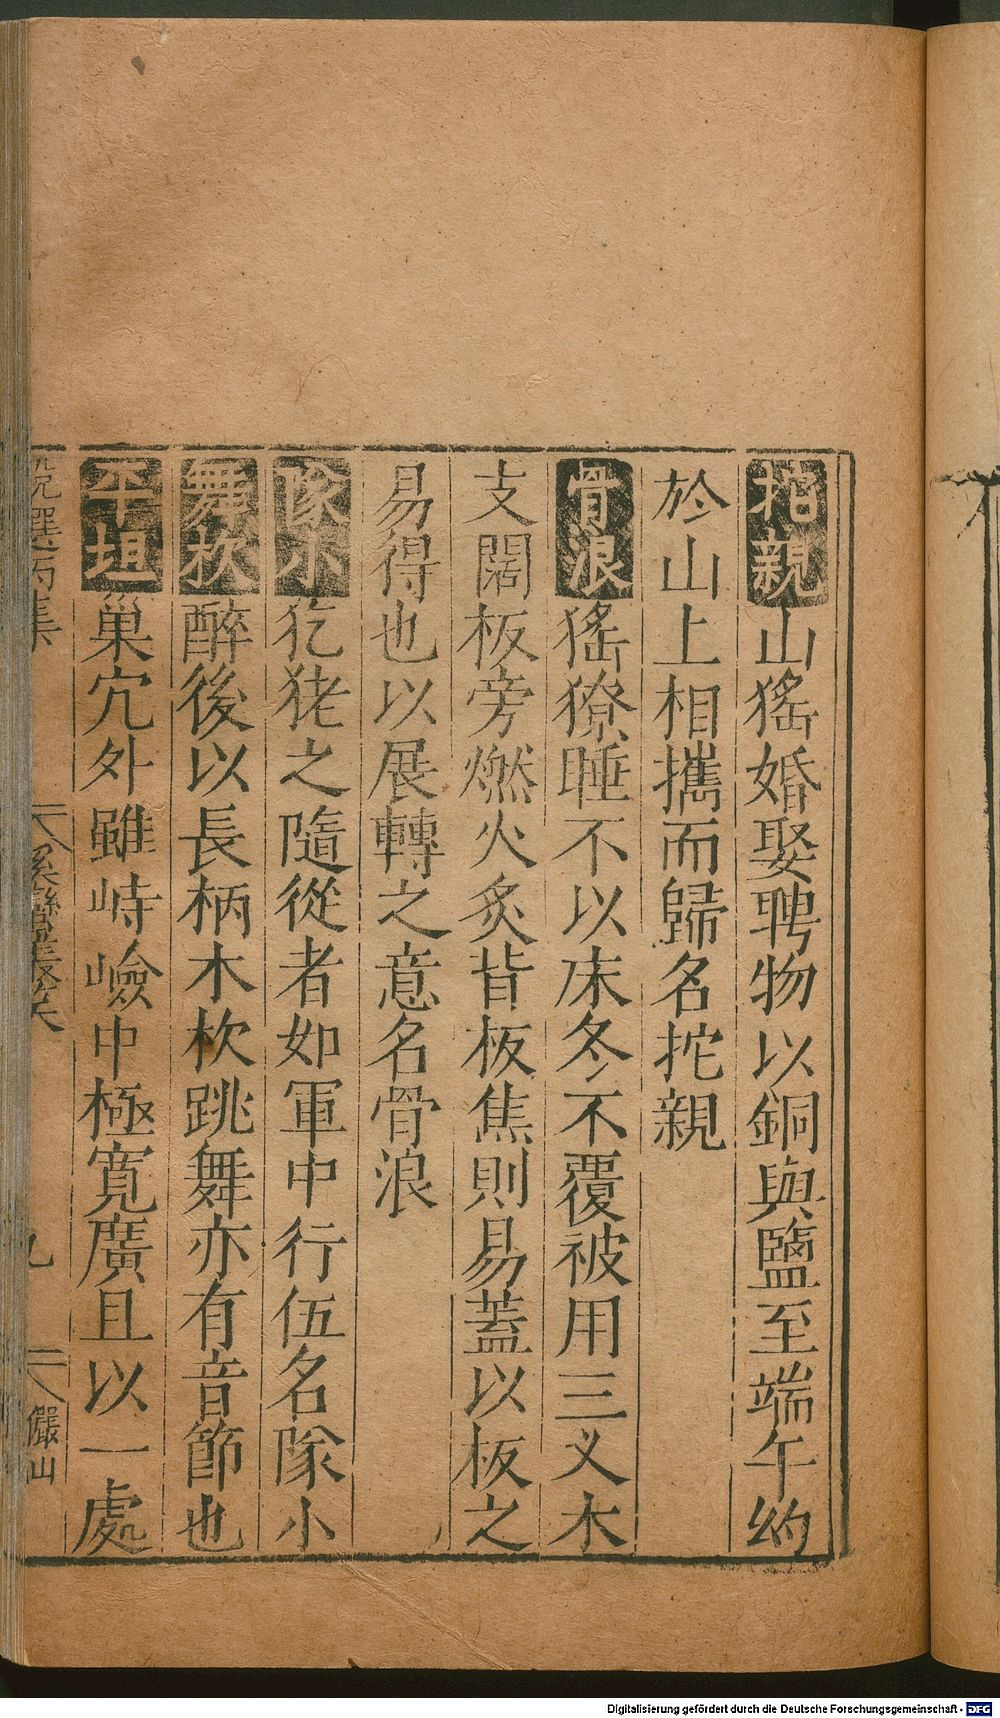 拕親山猺婚娶聘物以銅與鹽至端午約
於山上相攜而歸名拕親
骨浪猺獠睡不以床冬不覆被用三义木
支闊板旁燃火炙背板焦則易蓋以板之
易得也以展轉之意名骨浪
隊小犵狫之隨從者如軍中行伍名隊小
舞杴醉後以長柄木杴跳舞亦有音節也
平坦巢穴外雖峙嶮中極寬廣且以一處
說選丙集 溪蠻叢笑 九 儼山
Digitalisierung gefördert durch die Deutsche Forschungsgemeinschaft - DFG